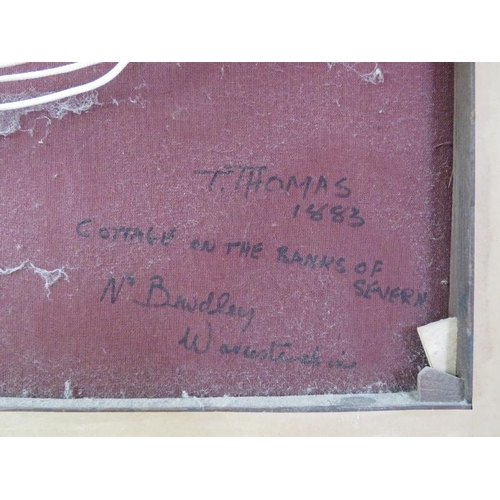 T. THOMAS
1883
COTTAGE ON THE BANKS OF
SEVERN
Nr Bewdley
Worcestershire